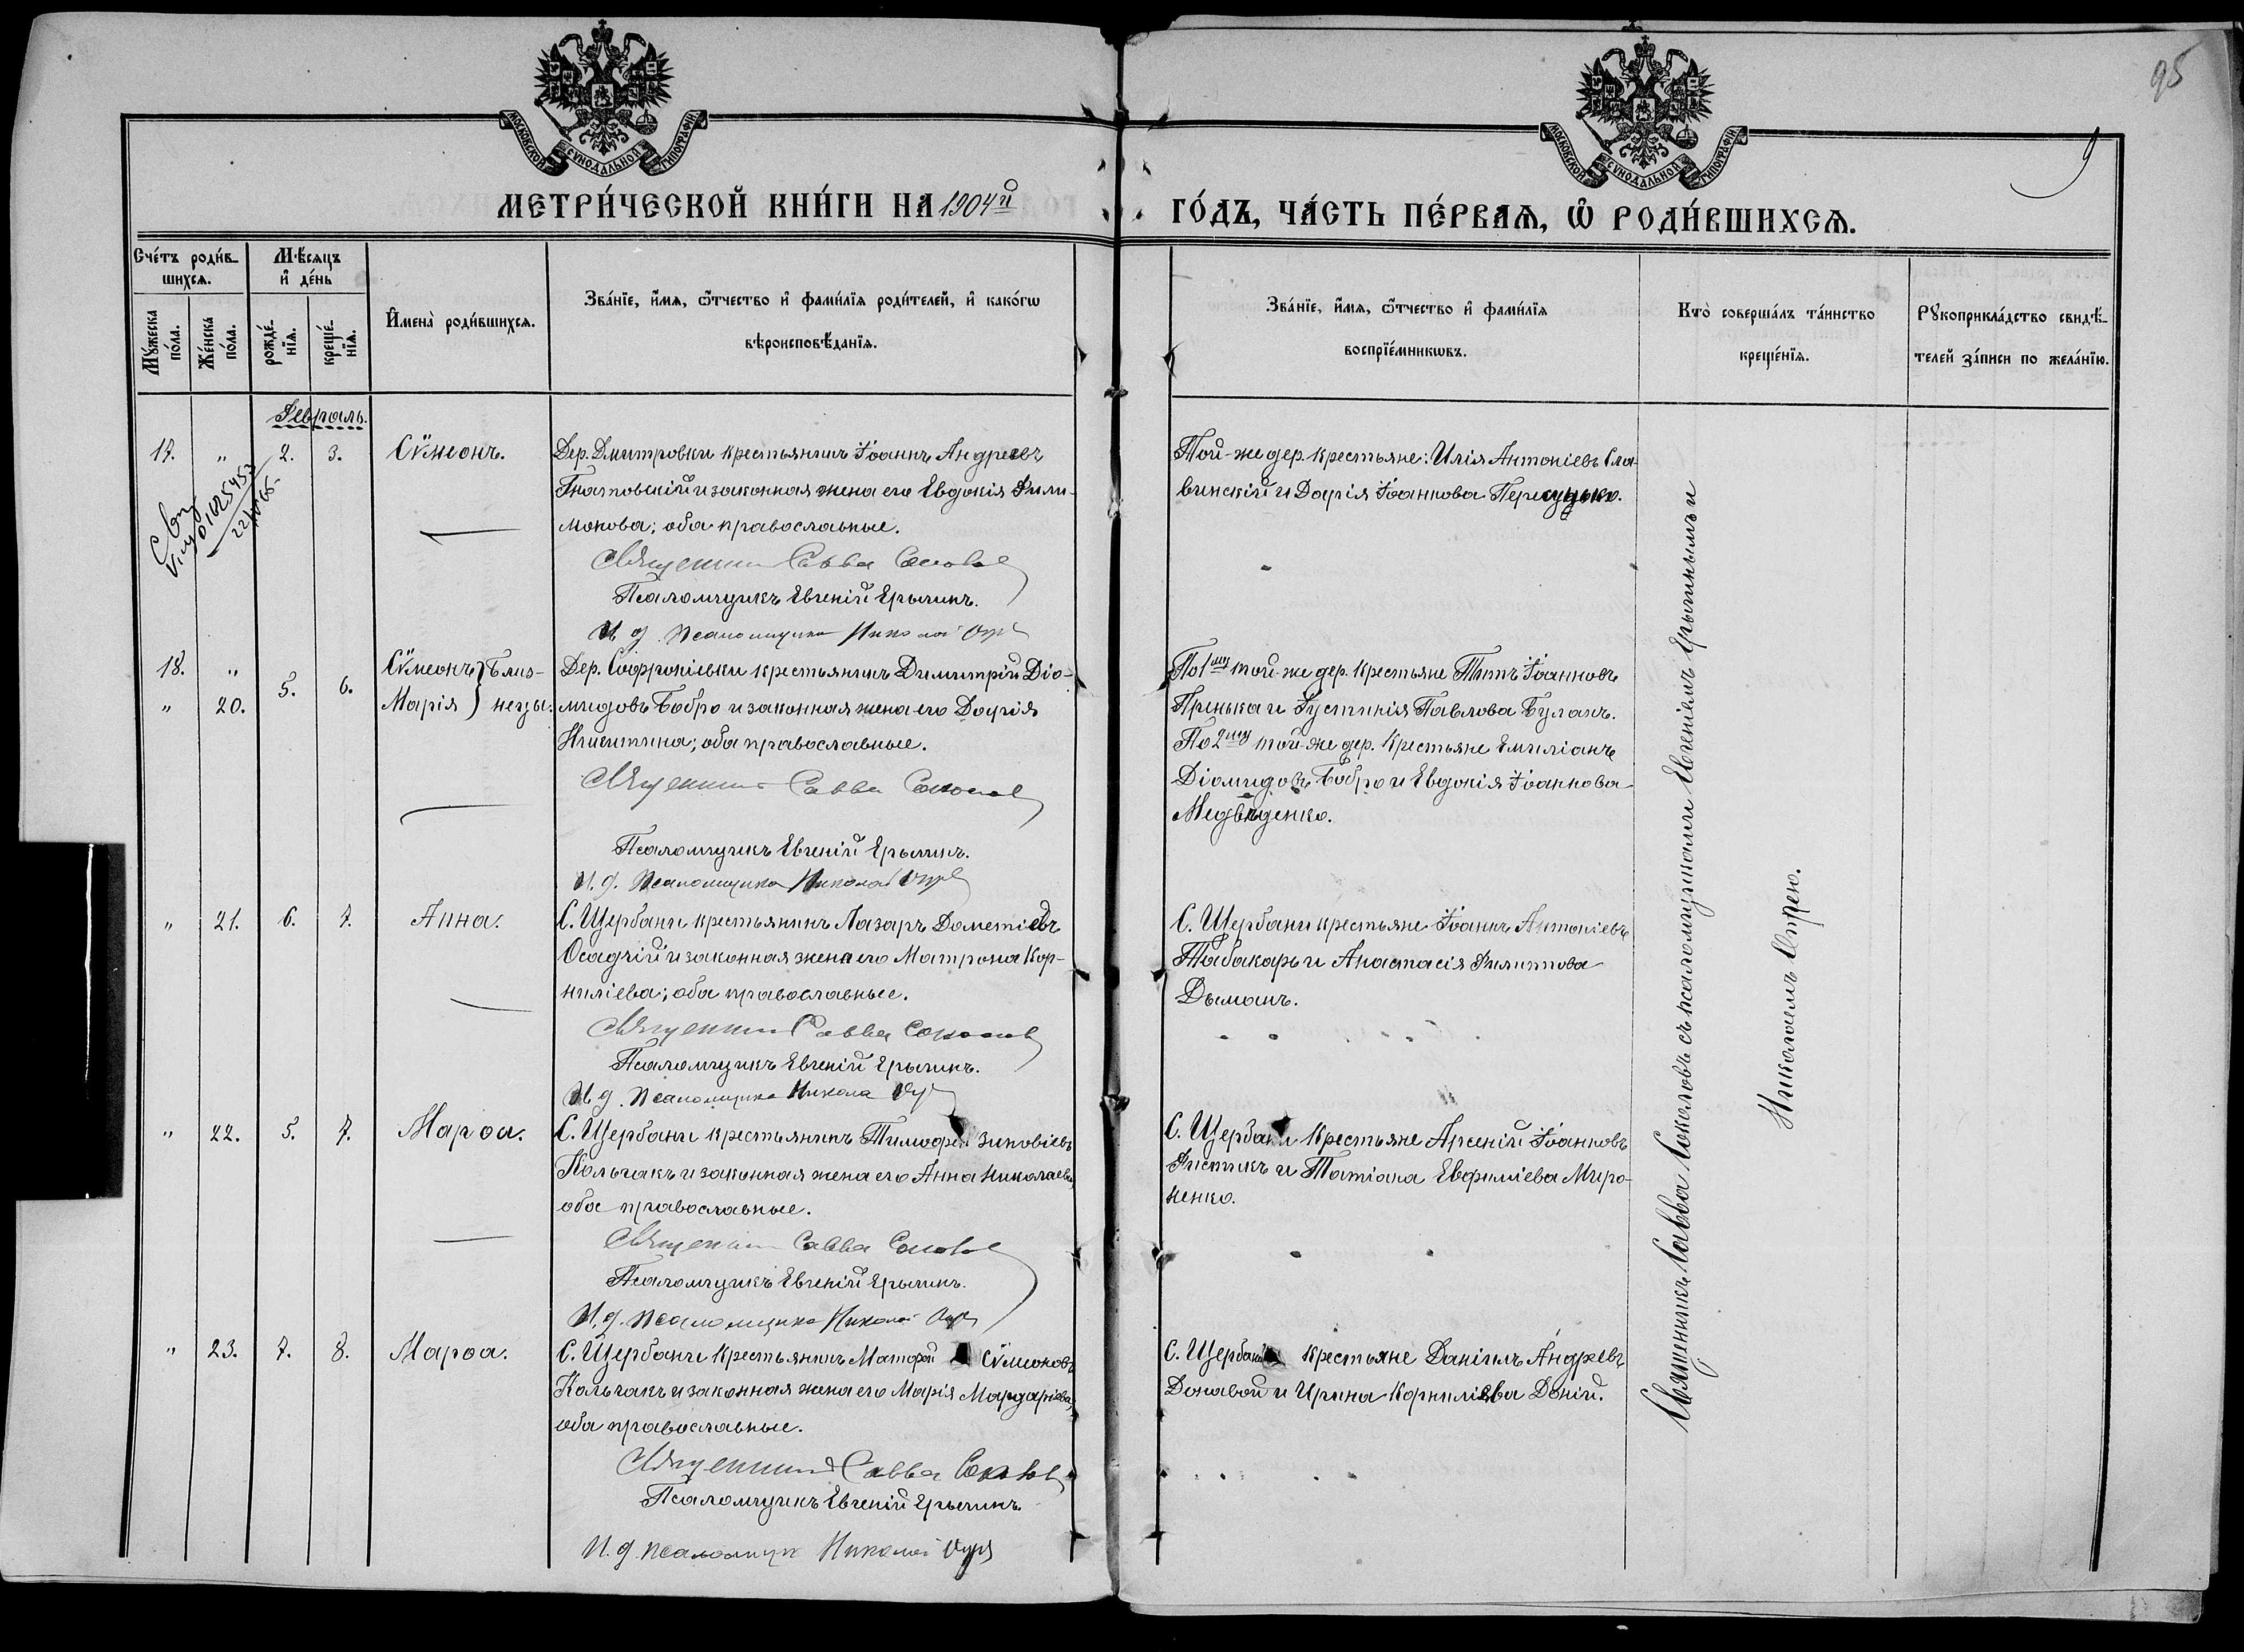 95
9
МОСКОВСКОЙ СУНОДАЛЬНОЙ ТИПОГРАФІИ
МОСКОВСКОЙ СУНОДАЛЬНОЙ ТИПОГРАФІИ
МЕТРИ́ЧЕСКОЙ КНИ́ГИ НА 1904й
ГО́ДЪ, ЧА́СТЬ ПЕ́РВАѦ, Ѡ҆ РОДИ́ВШИХСѦ.
Сче́тъ роди́в-
шихсѧ.
Мꙋ́жеска
по́ла.
Же́нска
по́ла.
Мѣ́сяцъ
и҆ де́нь
рожде́-
нїѧ.
креще́-
нїѧ.
И҆мена̀ роди́вшихсѧ.
Зва́нїе, и҆́мѧ, ѻ҆́тчество и҆ фами́лїѧ роди́телей, и҆ како́гѡ
вѣроисповѣ́данїѧ.
Зва́нїе, и҆́мѧ, ѻ҆́тчество и҆ фами́лїѧ
воспрїе́мникѡвъ.
Кто̀ соверша́лъ та́инство
креще́нїѧ.
Рꙋкоприкла́дство свидѣ́-
телей за́писи по жела́нїю.
Февраль.
17. " 2. 3. Сѵмеонъ.
Дер. Дмитровки крестьянинъ Іоаннъ Андреевъ
Гнатовскій и законная жена его Евдокія Фили-
монова; оба православные.
Священникъ Савва Соколовъ
Псаломщикъ Евгеній Ерыгинъ.
И. д. псаломщика Николай
Той-же дер. крестьяне: Илія Антоніевъ Сла-
винскій и Дарія Іоаннова
18. " 5. 6. Сѵмеонъ } Близ-
" 20. Марія } нецы.
Дер. Софроніевки крестьянинъ Димитрій Діо-
мидовъ Бобро и законная жена его Дарія
Никитина; оба православные.
Священникъ Савва Соколовъ
Псаломщикъ Евгеній Ерыгинъ.
И. д. псаломщика Николай
По 1му той-же дер. крестьяне Титъ Іоанновъ
Принька и Іустинія Павлова Буланъ.
По 2му той-же дер. крестьяне Емиліанъ
Діомидовъ Бобро и Евдокія Іоаннова
Медвѣденко.
" 21. 6. 7. Анна.
С. Щербани крестьянинъ Лазарь Дометіевъ
Осадчій и законная жена его Матрона Кор-
ниліева; оба православные.
Священникъ Савва Соколовъ
Псаломщикъ Евгеній Ерыгинъ.
И. д. псаломщика Николай
С. Щербани крестьяне Іоаннъ Антоніевъ
Табакарь и Анастасія Филиппова
Дыманъ.
" 22. 5. 7. Марѳа.
С. Щербани крестьянинъ Тимофей Зиновіевъ
Кольчакъ и законная жена его Анна Николаева;
оба православные.
Священникъ Савва Соколовъ
Псаломщикъ Евгеній Ерыгинъ.
И. д. псаломщика Николай
С. Щербани крестьяне Арсеній Іоанновъ
Фистикъ и Татіана Евфиміева Миро-
ненко.
" 23. 7. 8. Марѳа.
С. Щербани крестьянинъ Матфей Сѵмеоновъ
Кольчакъ и законная жена его Марія Мардаріева;
оба православные.
Священникъ Савва Соколовъ
Псаломщикъ Евгеній Ерыгинъ
И. д. псаломщик Николай
С. Щербани крестьяне Даніилъ Андреевъ
Донавой и Ирина Корниліева Доній.
Священникъ Савва Соколовъ съ псаломщиками Евгеніемъ Ерыгинымъ и
Николаемъ